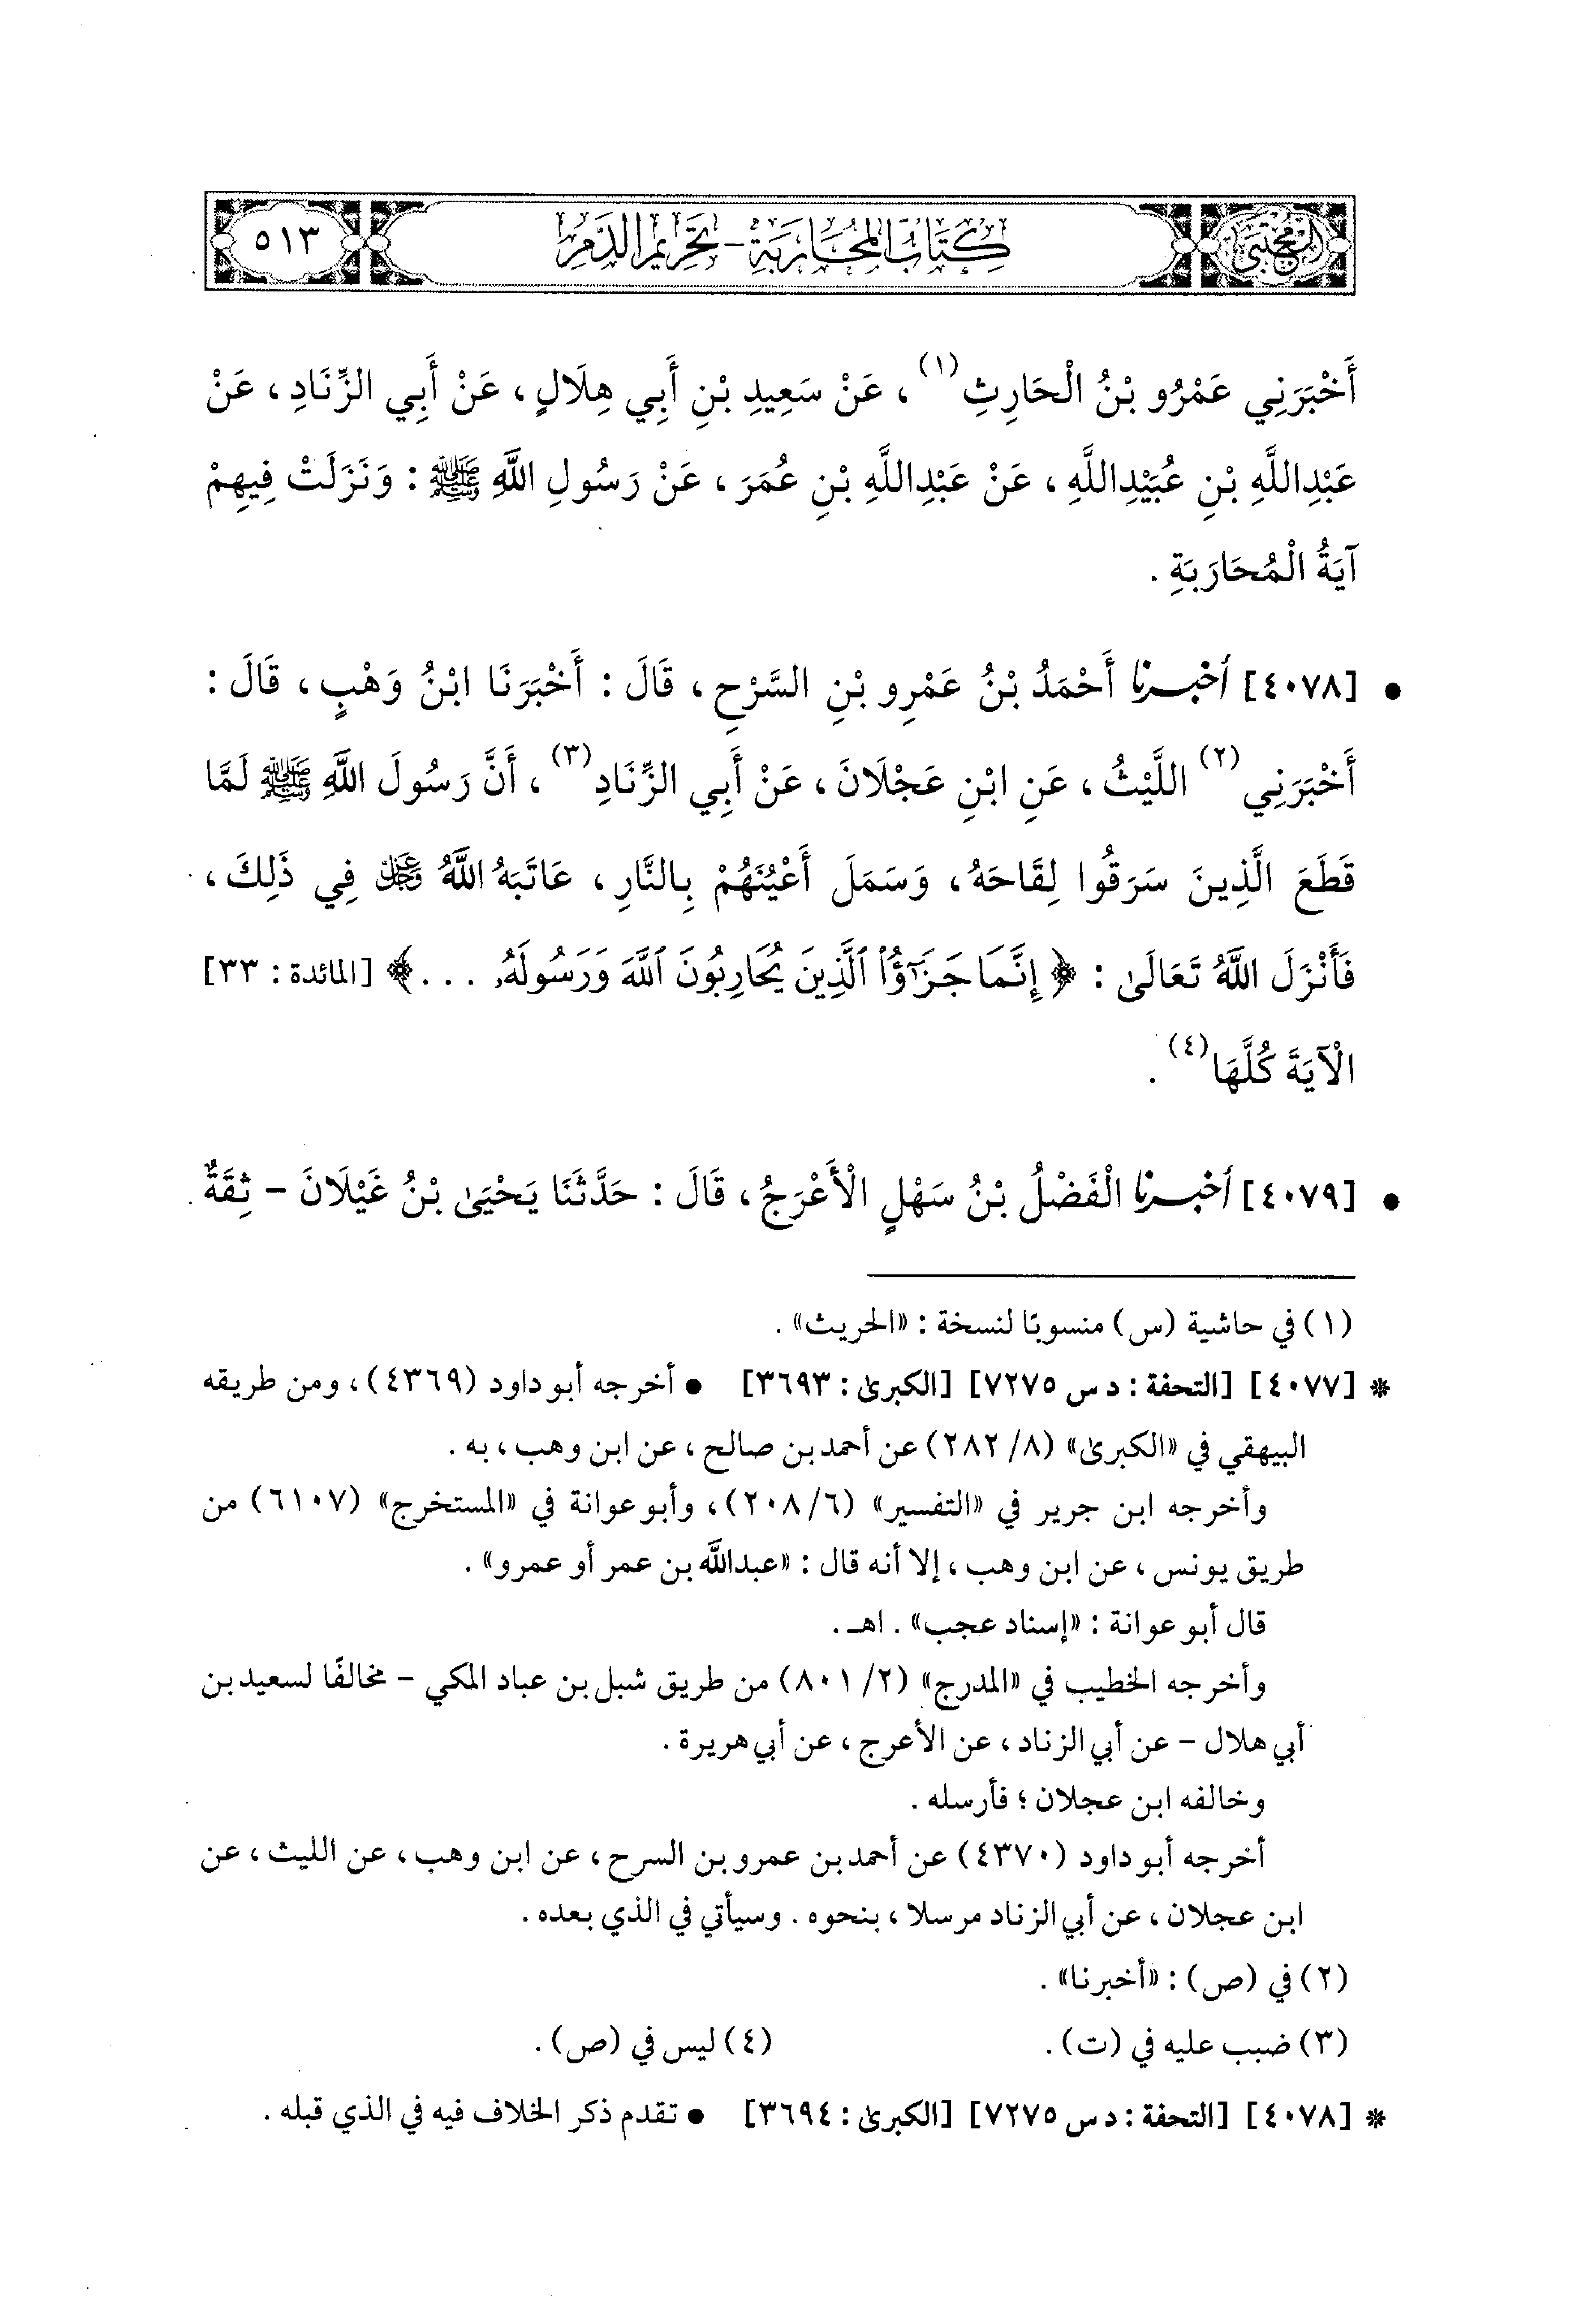 ٥١٣
كِتَابُ الْمُحَارَبَةِ - تَحْرِيمِ الدَّمِ
المجتبى
أَخْبَرَنِي عَمْرُو بْنُ الْحَارِثِ(١)، عَنْ سَعِيدِ بْنِ أَبِي هِلَالٍ، عَنْ أَبِي الزِّنَادِ، عَنْ
عَبْدِاللَّهِ بْنِ عُبَيْدِاللَّهِ، عَنْ عَبْدِاللَّهِ بْنِ عُمَرَ، عَنْ رَسُولِ اللَّهِ ﷺ : وَنَزَلَتْ فِيهِمْ
آيَةُ الْمُحَارَبَةِ .
• [٤٠٧٨] أخبرنا أَحْمَدُ بْنُ عَمْرِو بْنِ السَّرْحِ، قَالَ : أَخْبَرَنَا ابْنُ وَهْبٍ، قَالَ :
أَخْبَرَنِي(٢) اللَّيْثُ، عَنِ ابْنِ عَجْلَانَ، عَنْ أَبِي الزِّنَادِ(٣)، أَنَّ رَسُولَ اللَّهِ ﷺ لَمَّا
قَطَعَ الَّذِينَ سَرَقُوا لِقَاحَهُ، وَسَمَلَ أَعْيُنَهُمْ بِالنَّارِ، عَاتَبَهُ اللَّهُ ﷿ فِي ذَلِكَ،
فَأَنْزَلَ اللَّهُ تَعَالَىٰ : ﴿إِنَّمَا جَزَٰٓؤُا۟ ٱلَّذِينَ يُحَارِبُونَ ٱللَّهَ وَرَسُولَهُۥ . . .﴾ [المائدة : ٣٣]
الْآيَةَ كُلَّهَا(٤) .
• [٤٠٧٩] أخبرنا الْفَضْلُ بْنُ سَهْلٍ الْأَعْرَجُ، قَالَ : حَدَّثَنَا يَحْيَىٰ بْنُ غَيْلَانَ - ثِقَةٌ
(١) في حاشية (س) منسوبًا لنسخة : «الحريث» .
* [٤٠٧٧] [التحفة : د س ٧٢٧٥] [الكبرىٰ : ٣٦٩٣] • أخرجه أبو داود (٤٣٦٩)، ومن طريقه
البيهقي في «الكبرىٰ» (٨/ ٢٨٢) عن أحمد بن صالح، عن ابن وهب، به .
وأخرجه ابن جرير في «التفسير» (٦/ ٢٠٨)، وأبو عوانة في «المستخرج» (٦١٠٧) من
طريق يونس، عن ابن وهب، إلا أنه قال : «عبدالله بن عمر أو عمرو» .
قال أبو عوانة : «إسناد عجب» . اهـ .
وأخرجه الخطيب في «المدرج» (٢/ ٨٠١) من طريق شبل بن عباد المكي - مخالفًا لسعيد بن
أبي هلال - عن أبي الزناد، عن الأعرج، عن أبي هريرة .
وخالفه ابن عجلان؛ فأرسله .
أخرجه أبو داود (٤٣٧٠) عن أحمد بن عمرو بن السرح، عن ابن وهب، عن الليث، عن
ابن عجلان، عن أبي الزناد مرسلا، بنحوه . وسيأتي في الذي بعده .
(٢) في (ص) : «أخبرنا» .
(٣) ضبب عليه في (ت) .
(٤) ليس في (ص) .
* [٤٠٧٨] [التحفة : د س ٧٢٧٥] [الكبرىٰ : ٣٦٩٤] • تقدم ذكر الخلاف فيه في الذي قبله .